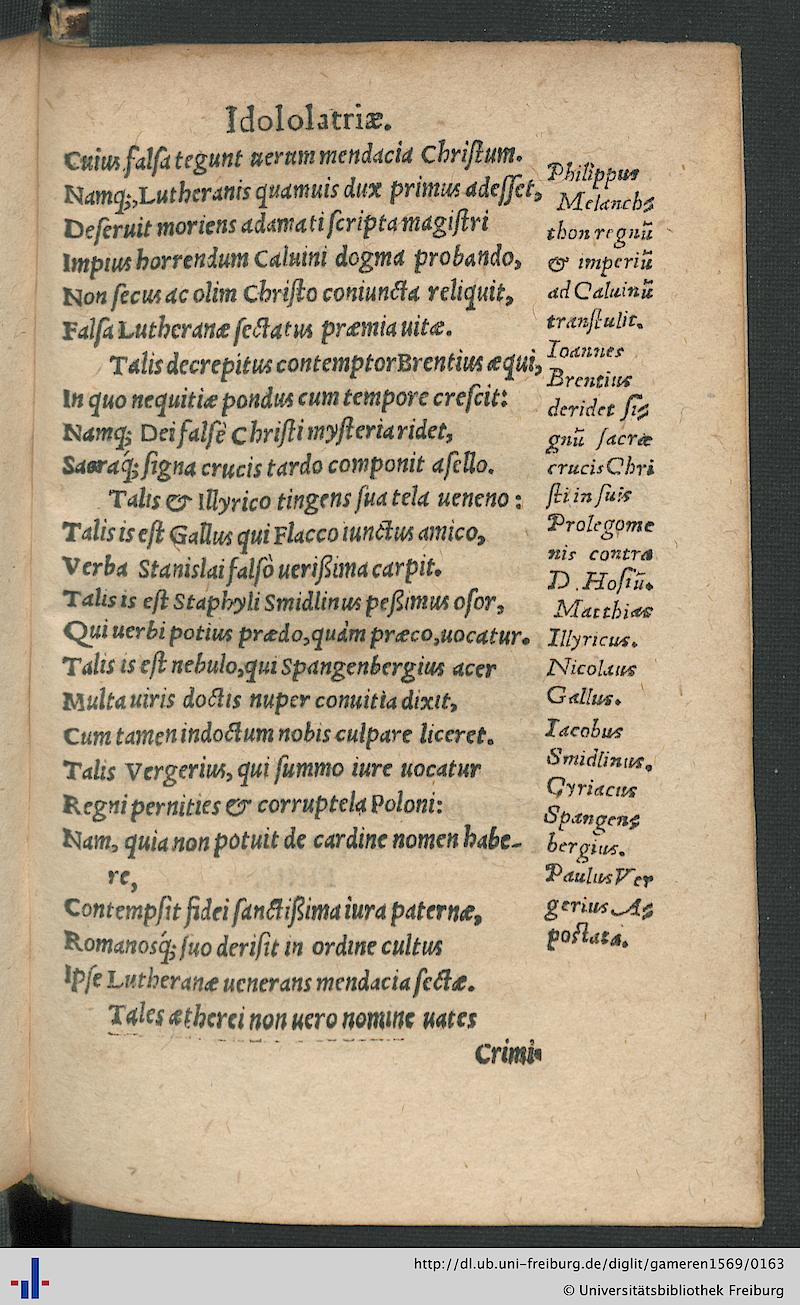 Idololatriæ.
Cuius falſa tegunt uerum mendacia Chriſtum.
Namq;, Lutheranis quamuis dux primus adeſſet,
Deſeruit moriens adamati ſcripta magiſtri
Impius horrendum Caluini dogma probando,
Non ſecus ac olim Chriſto coniuncta reliquit,
Falſa Lutheranæ ſectatus præmia uitæ.
Talis decrepitus contemptor Brentius æqui,
In quo nequitiæ pondus cum tempore creſcit:
Namq; Dei falſè Chriſti myſteria ridet,
Sacraq́; ſigna crucis tardo componit aſello.
Talis & Illyrico tingens ſua tela ueneno:
Talis is eſt Gallus qui Flacco iunctus amico,
Verba Stanislai falſò uerißima carpit.
Talis is eſt Staphyli Smidlinus peßimus oſor,
Qui uerbi potius prædo, quàm præco, uocatur.
Talis is eſt nebulo, qui Spangenbergius acer
Multa uiris doctis nuper conuitia dixit,
Cum tamen indoctum nobis culpare liceret.
Talis Vergerius, qui ſummo iure uocatur
Regni pernities & corruptela Poloni:
Nam, quia non potuit de cardine nomen habe-
re,
Contempſit fidei ſanctißima iura paternæ,
Romanosq́; ſuo deriſit in ordine cultus
Ipſe Lutheranæ uenerans mendacia ſectæ.
Tales ætherei non uero nomine uates
Crimi-
Philippus
Melanch-
thon regnũ
& imperiũ
ad Caluinũ
tranſtulit.
Ioannes
Brentius
deridet ſi-
gnũ ſacræ
crucis Chri
ſti in ſuis
Prolegome
nis contra
D. Hoſiũ.
Matthias
Illyricus.
Nicolaus
Gallus.
Iacobus
Smidlinus.
Cyriacus
Spangen-
bergius.
Paulus Ver
gerius A-
poſtata.
http://dl.ub.uni-freiburg.de/diglit/gameren1569/0163
© Universitätsbibliothek Freiburg